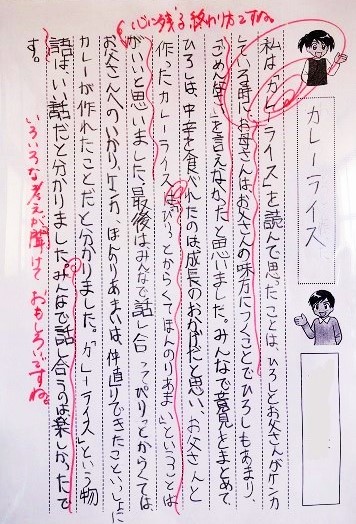 カレーライス
私は「カレーライス」を読んで思ったことは、ひろしとお父さんがケンカ
している時にお母さんはお父さんの味方につくことでひろしもあまり、
ごめんなさいを言えなかったと思いました。みんなで意見をまとめて
ひろしは、中辛を食べれたのは成長のおかげだと思い、お父さんと
作ったカレーライス「ぴりっとからくてほんのりあまい」ということば
がいいと思いました。最後はみんなで話し合って、ぴりっとからくては、
お父さんへのいかり、ケンカ、ほんのりあまいは、仲直りできたこと、いっしょに
カレーが作れたことだと分かりました。「カレーライス」という物
語は、いい話だと分かりました。みんなで話し合うのは楽しかったで
す。
心に残る終わり方ですね。
いろいろな考えが聞けて
おもしろいですね。